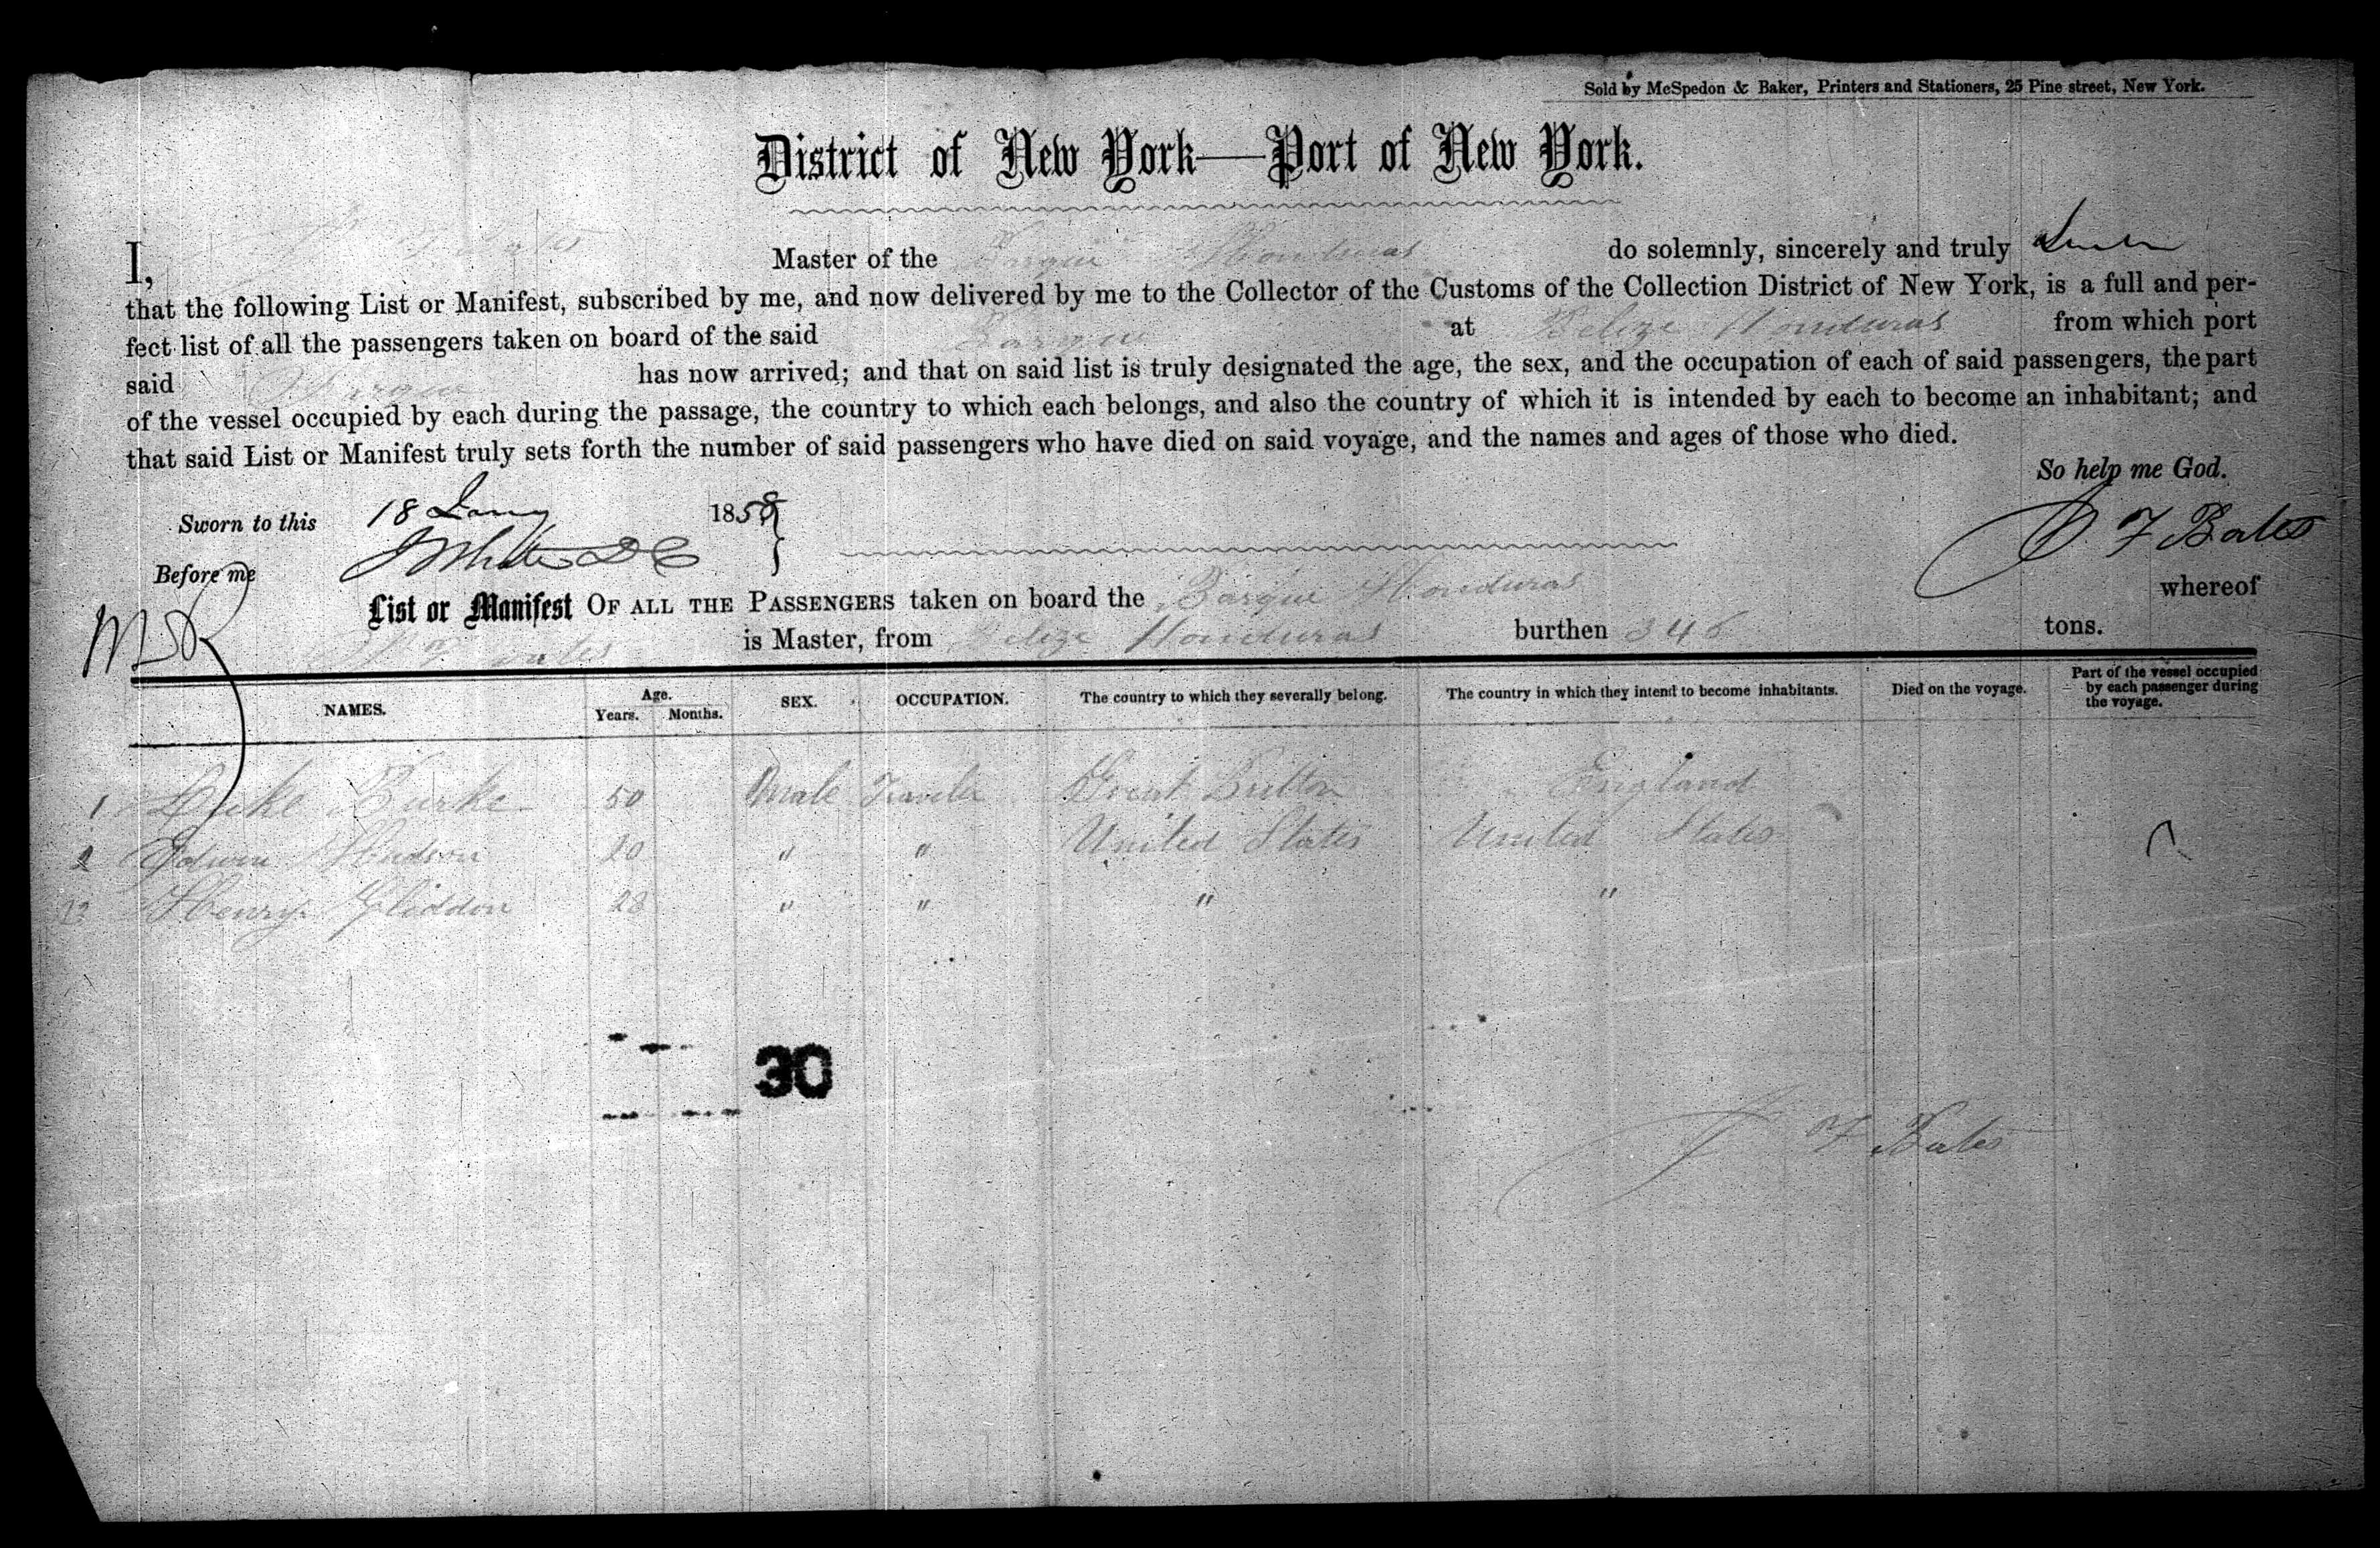 Sold by McSpedon & Baker, Printers and Stationers, 25 Pine street, New York.
District of New York—Port of New York.
I, F Bates Master of the Barque Honduras do solemnly, sincerely and truly
that the following List or Manifest, subscribed by me, and now delivered by me to the Collector of the Customs of the Collection District of New York, is a full and per-
fect list of all the passengers taken on board of the said Barque at Belize Honduras from which port
said Barque has now arrived; and that on said list is truly designated the age, the sex, and the occupation of each of said passengers, the part
of the vessel occupied by each during the passage, the country to which each belongs, and also the country of which it is intended by each to become an inhabitant; and
that said List or Manifest truly sets forth the number of said passengers who have died on said voyage, and the names and ages of those who died.
So help me God.
Sworn to this 18 Jany 1858
F Bates
Before me
List or Manifest OF ALL THE PASSENGERS taken on board the Barque Honduras whereof
F Bates is Master, from Belize Honduras burthen 346 tons.
NAMES. Age. Years. Months. SEX. OCCUPATION. The country to which they severally belong. The country in which they intend to become inhabitants. Died on the voyage. Part of the vessel occupied by each passenger during the voyage.
1 Luke Burke 50 Male Traveler Great Britton England
2 Edwin Hudson 20 " " United States United States
3 Henry Gliddon 28 " " " "
30
F Bates